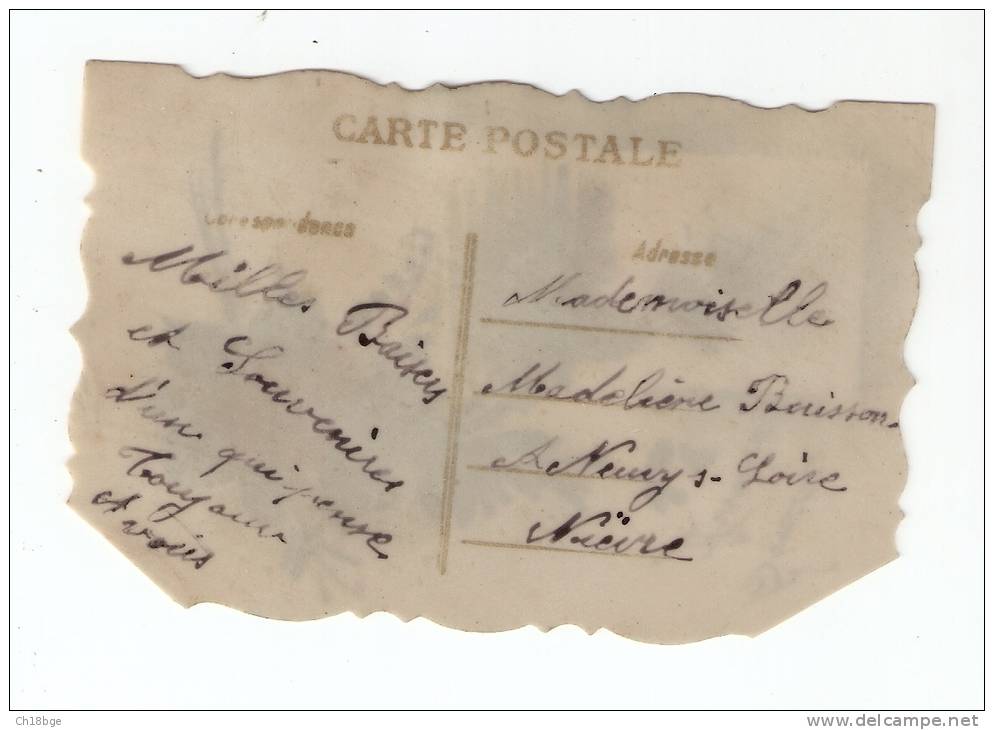 CARTE POSTALE
Correspondance
Adresse
Milles Baisers
et Souvenires
d'un qui pense
Toujour
A vous
Mademoiselle
Madeleine Buisson
A Neuvy s- Loire
Nièvre
Ch18bge
www.delcampe.net